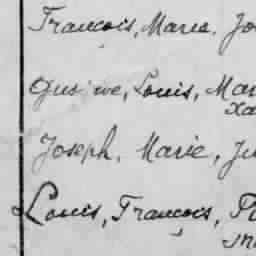 Francois, Marie. Jo
Gus ve, Louis, Mar
Xa
Joseph. Marie, Ju
Louis, François, Pi